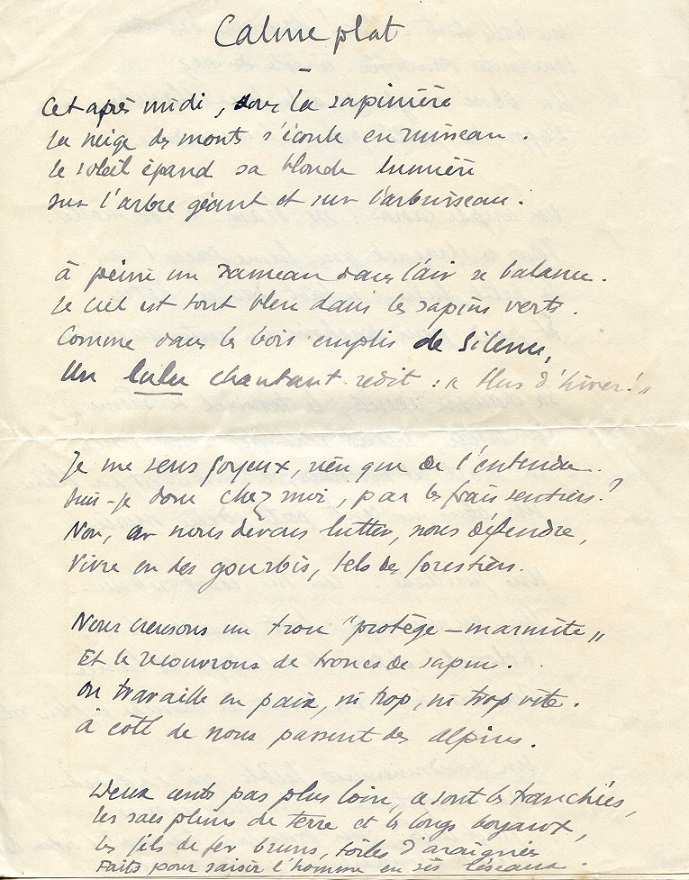 Calme plat
Cet après midi, dans la sapinière
La neige des monts s'écoule en ruisseau.
Le soleil épand sa blonde lumière
sur l'arbre géant et sur l'arbrisseau.
à peine un rameau dans l'air se balance.
Le ciel est tout bleu dans les sapins verts.
Comme dans les bois emplis de silence,
Un lulu chantant redit : « Plus d'hiver! »
Je me sens joyeux, rien que de l'entendre.
Suis-je donc chez moi, par les frais sentiers?
Non, car nous devons lutter, nous défendre,
Vivre en des gourbis, tels des forestiers.
Nous creusons un trou "protège-marmite"
Et le recouvrons de troncs de sapin.
On travaille en paix, ni trop, ni trop vite.
à côté de nous passent des alpins.
Deux cents pas plus loin, ce sont les tranchées,
Les sacs pleins de terre et les longs boyaux,
Les fils de fer bruns, toiles d'araignées
Faits pour saisir l'homme en ses réseaux.